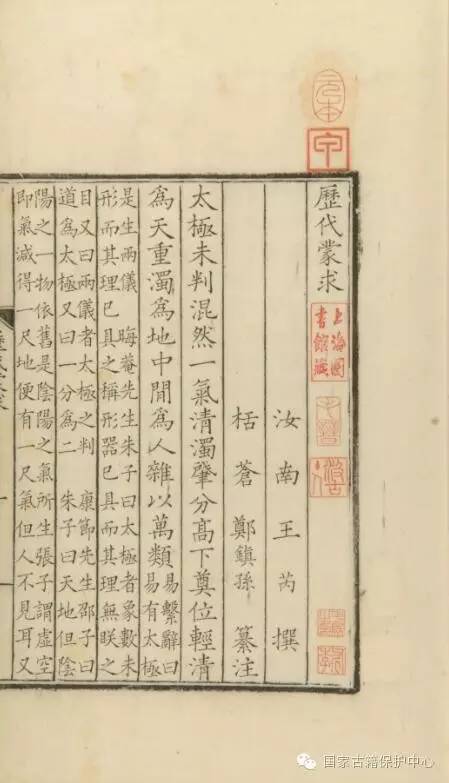 元本
甲
歷代蒙求
上海圖書館藏
汝南王芮撰
栝蒼鄭鎮孫纂注
太極未判混然一氣清濁肇分高下奠位輕清
爲天重濁爲地中閒爲人雜以萬類
易繫辭曰
易有太極
是生兩儀 晦菴先生朱子曰太極者象數未
形而其理已具之稱形器已具而其理無眹之
目又曰兩儀者太極之判 康節先生邵子曰
道爲太極又曰一分爲二 朱子曰天地但陰
陽之一物依舊是陰陽之氣所生張子謂虛空
即氣減得一尺地便有一尺氣但人不見耳又
国家古籍保护中心